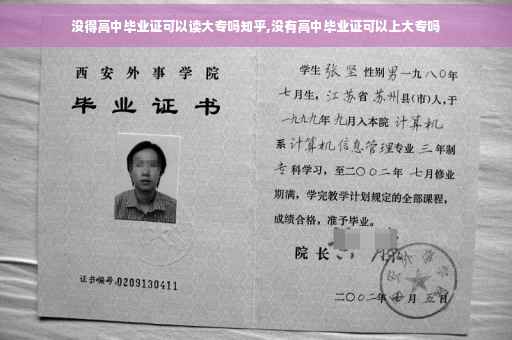 没得高中毕业证可以读大专吗知乎,没有高中毕业证可以上大专吗
西安外事学院
毕业证书
证书编号:0209130411
学生 张坚 性别 男 一九八〇年
七月生, 江苏省 苏州县(市)人,于
一九九九年 九月入本院 计算机
系 计算机信息管理专业 三 年制
专科学习,至二〇〇二年 七月修业
期满,学完教学计划规定的全部课程,
成绩合格,准予毕业。
院长
二〇〇二年 月 五日